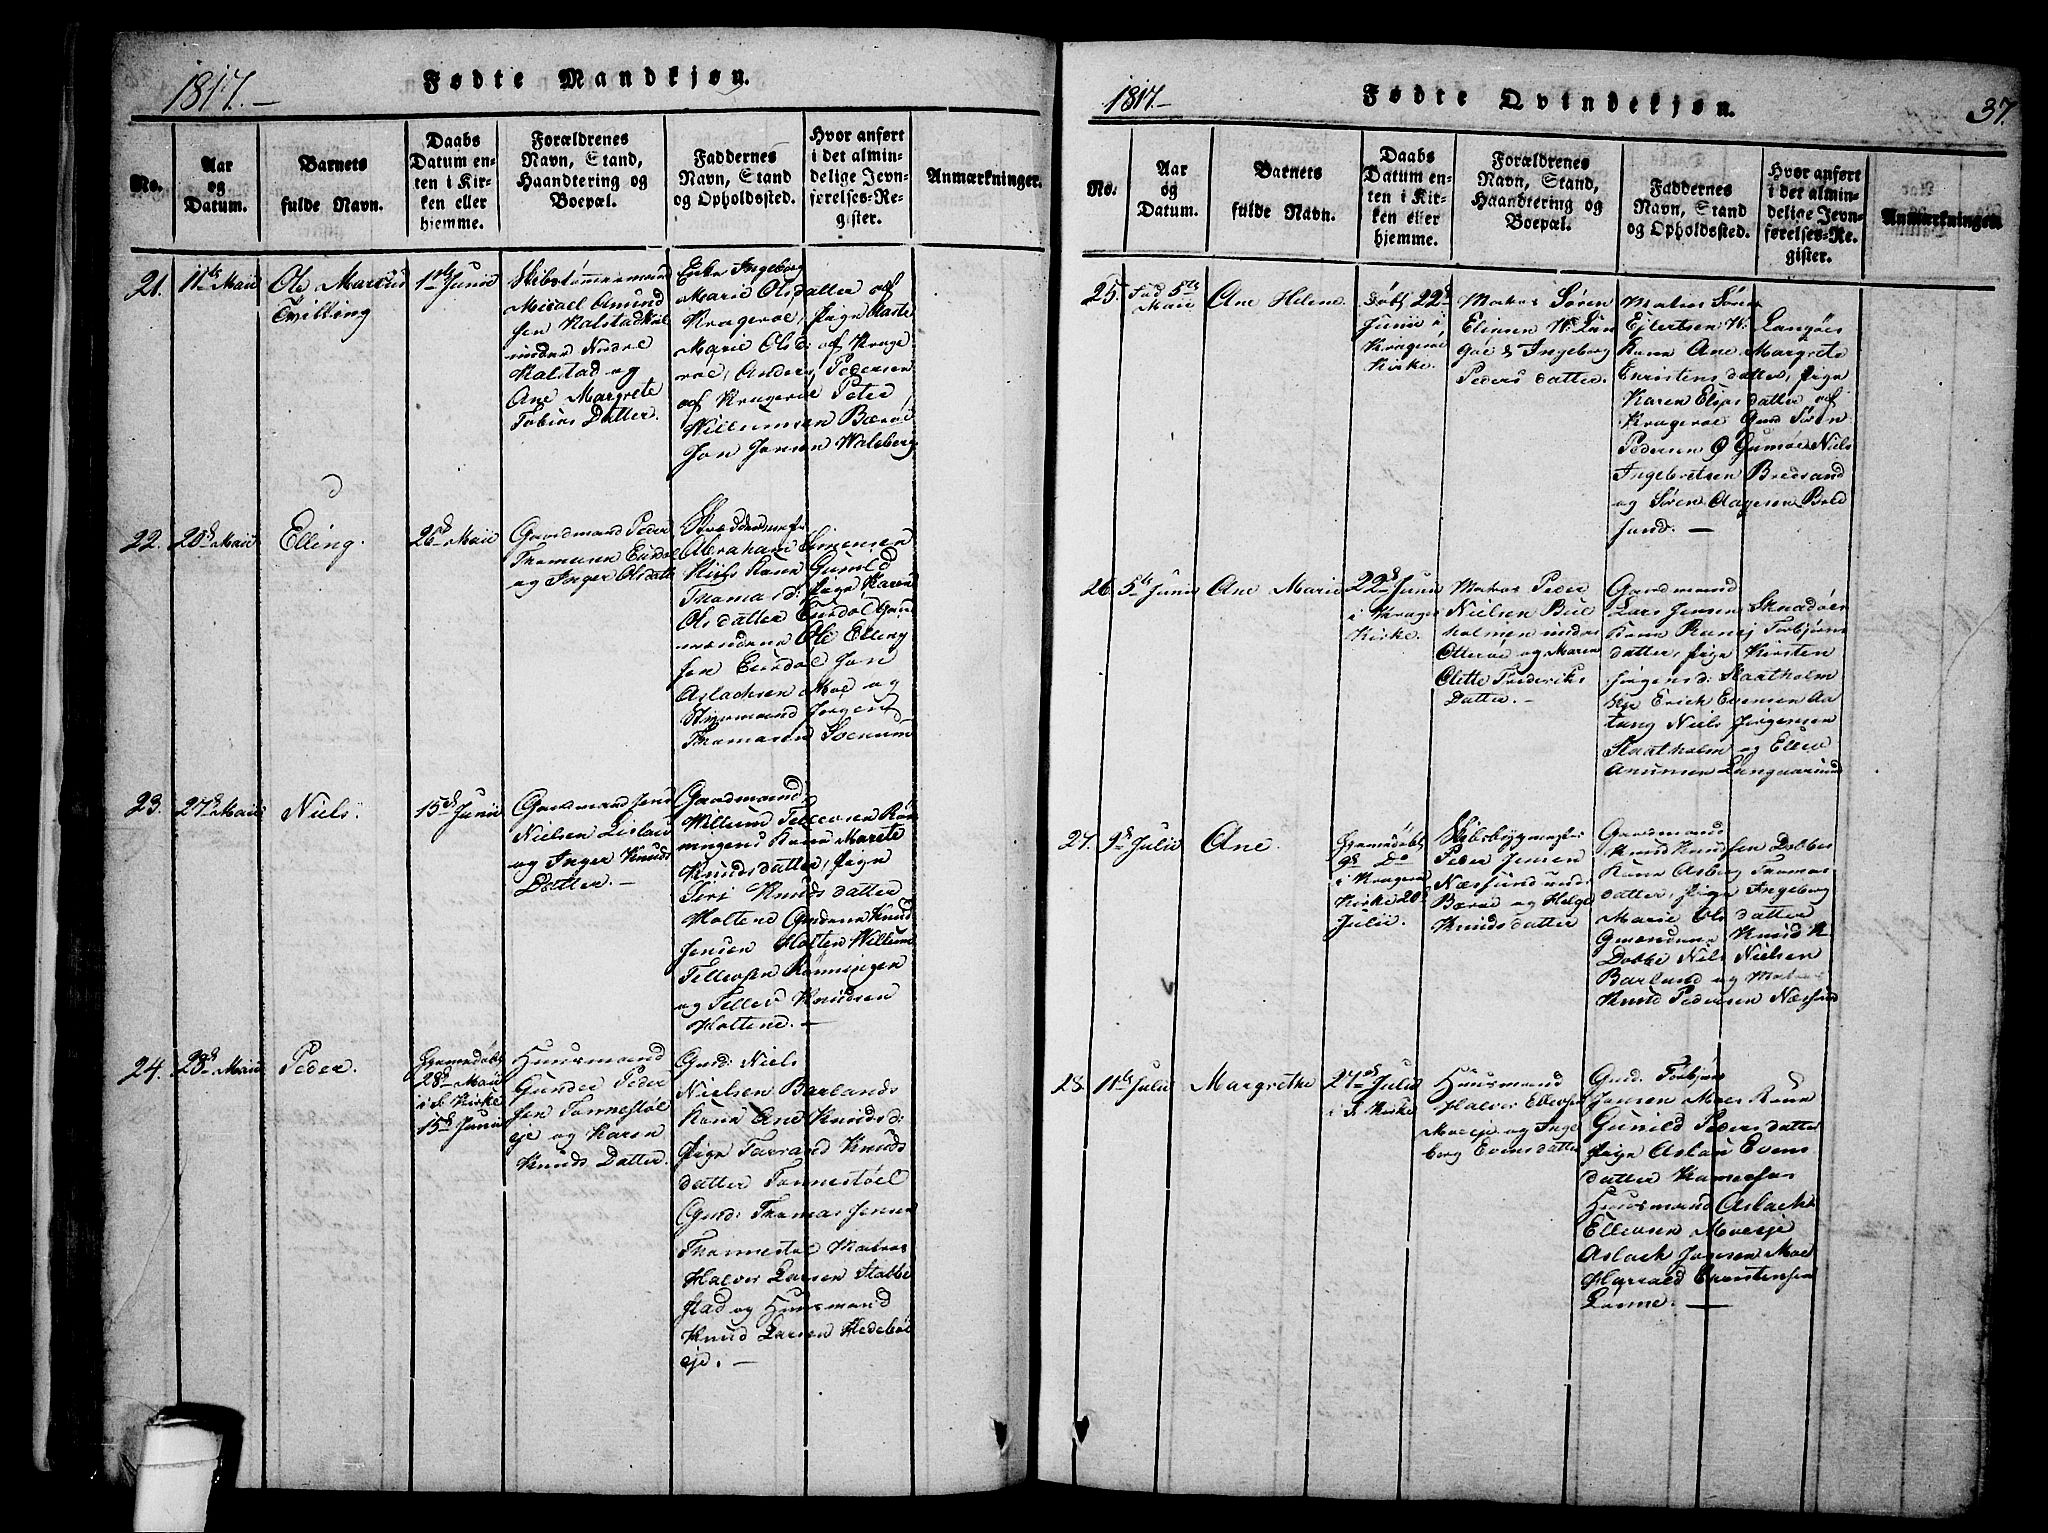 1817.
Fødte Mandkjøn.
No.
Aar
og
Datum.
Barnets
fulde Navn.
Daabs
Datum en-
ten i Kir-
ken eller
hjemme.
Forældrenes
Navn, Stand,
Haandtering og
Boepæl.
Faddernes
Navn, Stand
og Opholdssted.
Hvor anført
i det almin-
delige Jevn-
førelses-Re-
gister.
Anmærkninger.
21.
11te Maii
Ole Marius
Tvilling
1ste Junii
Skibstømmermand
Micael Amund
sen Kalstadkiil
under Nedre
Kalstad og
Ane Margrete
Tobias Datter.
Enke Ingeborg
Marie Olsdatter af
Kragerøe, Pige Marte
Marie Olsd: af Krage
røe, Anders Pedersen
af Kragerøe Peter
Willumsen Bærøe
Jon Jonsen Walberg
22.
20de Maii
Elling.
26de Maii
Gaardmand Peder
Thomesen Eurdøl
og Inger Olsdatt:
Abraham Simensen
Kiils Kone Gunild
Thomasd: Pige Karen
Olsdatter Eurdøl Gaar
mændene Ole Elling
sen Eurdøl Jon
Aslachsen Moe og
Styrmand Jørgen
Thomasen
23.
27de Maii
Niels
15de Junii
Gaardmand Jens
Nielsen Lislau
og Inger Knuds
Datter. —
Gaardmand
Willum Tellevsen Røn
ningens Kone Marete
Knudsdatter, Pige
Tori Knudsdatter
Holtene Gmdene Knud
Jensen Holten Willum
Tellevsen Rønningen
og Tellev Knudsen
Holtene. —
24.
28de Maii
Peder.
Hjemmedøbt
28de Maii
i S. Kirke
15de Junii
Huusmand
Gunder Peder
sen Tonnestøl
eje og Karen
Knuds Datter.
Gmd: Niels
Nielsen Barlands
Kone Ane Knudsd:
Pige Tarrand Knuds
datter Tonnestøel
Gmd: Thomas Jensen
Thonnestøl Matros
Halvor Larsen Stabbe
stad og Huusmand
Knud Larsen Hedebøl
eje. —
1817.
Fødte Qvindekjøn.
37.
No.
Aar
og
Datum.
Barnets
fulde Navn.
Daabs
Datum en-
ten i Kir-
ken eller
hjemme.
Forældrenes
Navn, Stand,
Haandtering og
Boepæl.
Faddernes
Navn, Stand
og Opholdssted.
Hvor anført
i det almin-
delige Jevn-
førelses-Re-
gister.
Anmærkninger.
25.
Fød 5te
Maii
Ane Helene
Døbt 22de
Junii i
Kragerøe
Kirke.
Matros Søren
Eliasen W. Lan
gøe & Ingeborg
Peders datter.
Matros Søren
Ejlertsen W. Langøes
Kone Ane Margrete
Christensdatter, Pige
Karen Eliasdatter af
Kragerøe Gmd Søren
Pedersen Ø Gumøe Niels
Ingebretsen Bredsand
og Søren Aagesen Bred
sand. —
26.
5te Junii
Ane Marie
22de Junii
i Kragerø
Kirke.
Matros Peder
Nielsen Bue
holmen under
Otterøe og Maren
Olette Frederiks
Datter. —
Gaardmand
Lars Jensen Sknadøes
Kone Ranej Torbjørns
datter, Pige Kirsten
Jørgensd: Skaatholm
eje Erich Evensen
Niels Jørgensen
Skaatholm og Ellev
27.
9de Julii
Ane.
Hjemmedøbt
9de Do
i Kragerø
Kirke 20de
Julii.
Skibsbygmester
Peder Jensen
Næssund under
Bærøe og Helge
Knudsdatter
Gaardmand
Knud Knudsen Dobbes
Kone Asberg Thomas
datter, Pige Ingeborg
Marie Olsdatter
Gmændene Knud K.
Dobbe Niels Nielsen
Barland og Matros
Knud Pedersen Næssund
28.
11te Julii
Margrethe
27de Julii
i S. Kirke
Huusmand
Halvor Ellevsen
Moeeje og Inge
borg Evensdatter
Gmd: Torbjøn
Jonsen Moes Kone
Gunild Pedersdatter
Pige Aslau Evens
datter
Huusmand Aslach
Ellevsen Moeeje
Aslach Jonsen Moe
Harrald Christensen
Lønne. —